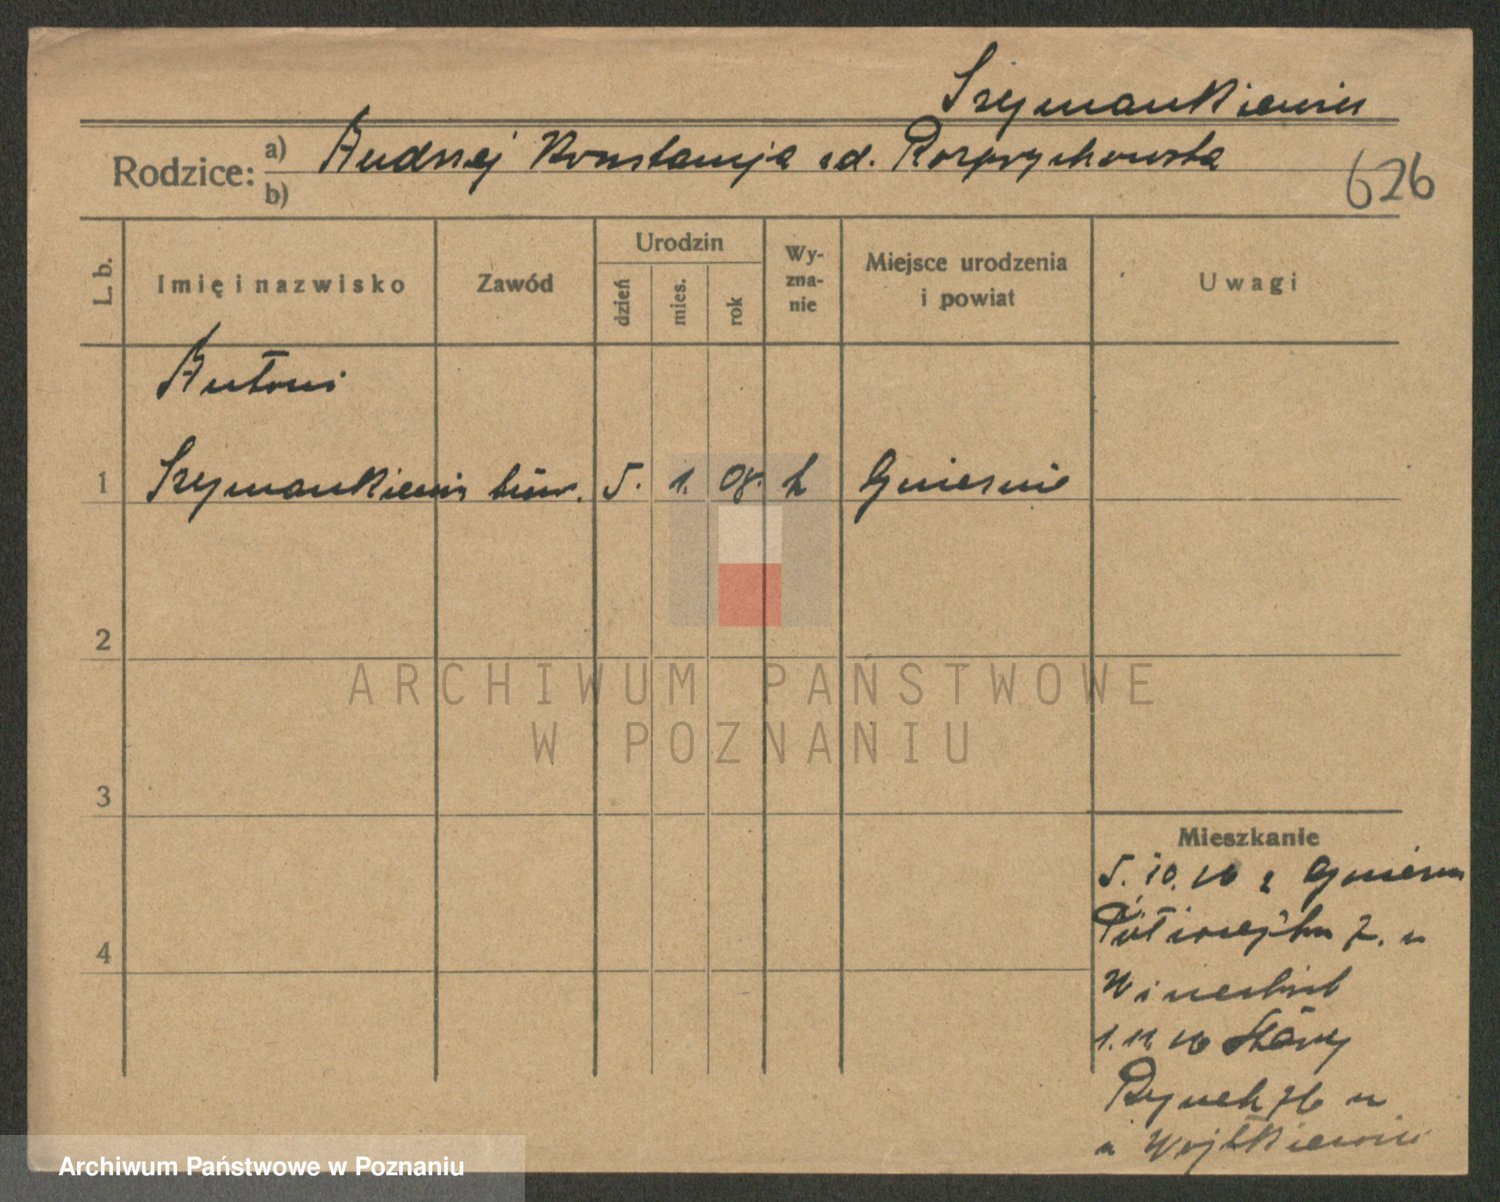 Szymankiewicz
Rodzice: a) Andrzej Konstancja z d. Rozprzychowska
b)
626
L. b.
Imię i nazwisko
Zawód
Urodzin
dzień
mies.
rok
Wy-
zna-
nie
Miejsce urodzenia
i powiat
Uwagi
Antoni
1 Szymankiewicz biur. 5. 1. 08. k Gnieznie
2
ARCHIWUM PAŃSTWOWE
W POZNANIU
3
Mieszkanie
5.10.26 z Gniezna
Półwiejska 7. u
4
1.11.26 Stary
Rynek 76 u
u Wojtkiewicz
Archiwum Państwowe w Poznaniu